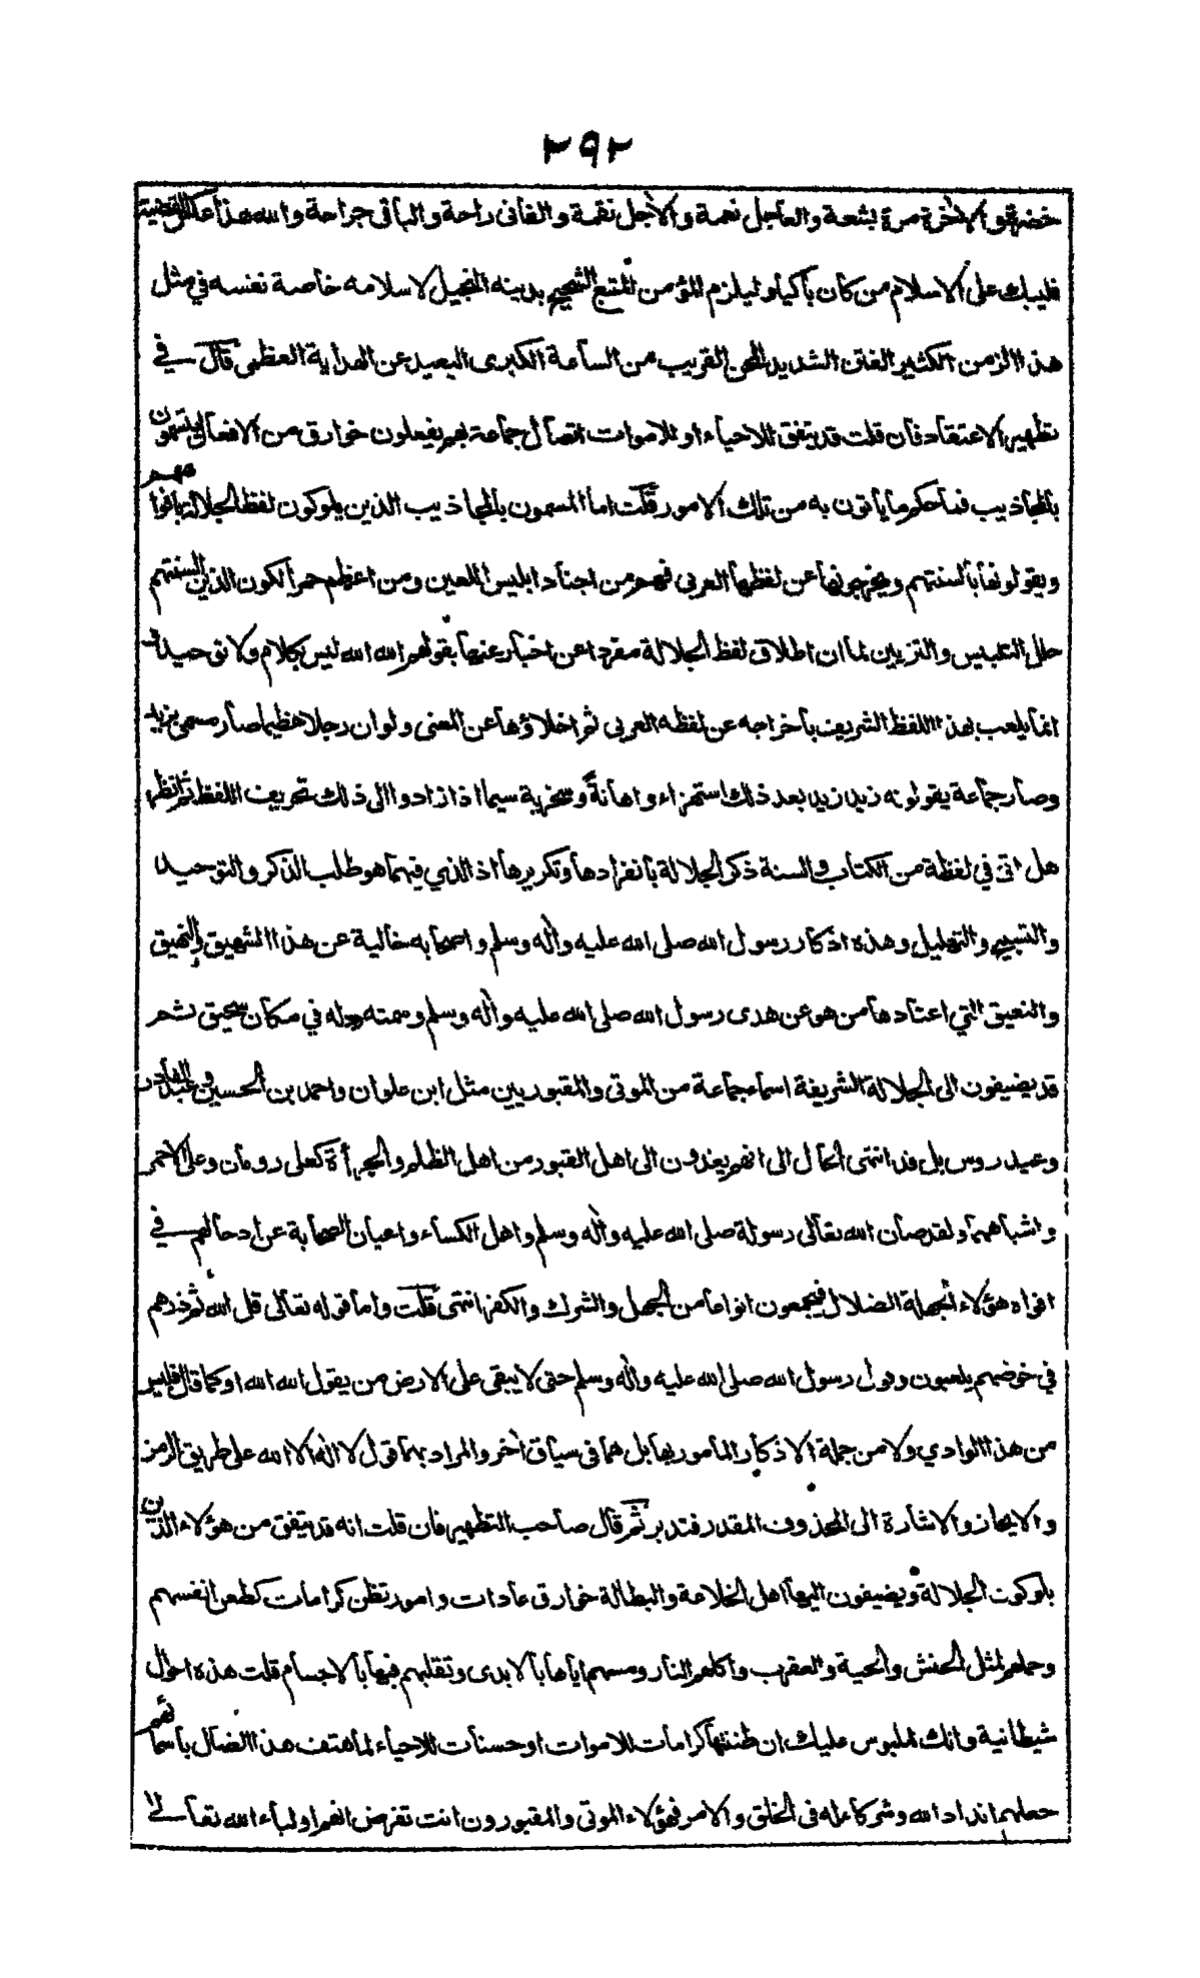 ٢٩٢
خضرة والآخرة مرة بشعة والعاجل نعمة والآجل نقمة والفانى راحة والباقى جراحة والله هذا عكس القضية
فليبك على الاسلام من كان باكيا وليلزم المؤمن المتبع الشحيح بدينه البخيل لاسلامه خاصة نفسه في مثل
هذا الزمن الكثير الفتن الشديد المحن القريب من الساعة الكبرى البعيد عن الهداية العظمى قال في
تطهير الاعتقاد فان قلت قد يتفق للاحياء او للاموات اتصال جماعة بهم يفعلون خوارق من الافعال يتسمون
بالمجاذيب فما حكم ما يأتون به من تلك الامور قلت اما المسمون بالمجاذيب الذين يلوكون لفظ الجلالة بافواههم
ويقولونها بألسنتهم ويخرجونها عن لفظها العربى فهم من اجناد ابليس اللعين ومن اعظم حمر الكون الذين البستهم
حلل التلبيس والتزيين لما ان اطلاق لفظ الجلالة مفردا عن اخبار عنها بقولهم الله الله ليس بكلام ولا توحيد
انما يلعب بهذا اللفظ الشريف باخراجه عن لفظه العربى ثم اخلاؤها عن المعنى ولو ان رجلا عظيما صار مسمى بزيد
وصار جماعة يقولونه زيد زيد بعد ذلك استهزاء واهانة وسخرية سيما اذا زادوا الى ذلك تحريف اللفظ ثم انظر
هل اتى في لفظة من الكتاب والسنة ذكر الجلالة بانفرادها وتكريرها اذ الذي فيهما هو طلب الذكر والتوحيد
والتسبيح والتهليل وهذه اذكار رسول الله صلى الله عليه وآله وسلم واصحابه خالية عن هذا الشهيق والنهيق
والنعيق التي اعتادها من هو عن هدى رسول الله صلى الله عليه وآله وسلم وسمته ودله في مكان سحيق ثم
قد يضيفون الى الجلالة الشريفة اسماء جماعة من الموتى والمقبوريين مثل ابن علوان واحمد بن الحسين وعبد القادر
وعيدروس بل قد انتهى الحال الى انهم يغدون الى اهل القبور من اهل الظلم والجرأة كعلى رومان وعلى الاحمر
واشباههما ولقد صان الله تعالى رسوله صلى الله عليه وآله وسلم واهل الكساء واعيان الصحابة عن ادخالهم في
افواه هؤلاء الجهلة الضلال فيجمعون انواعا من الجهل والشرك والكفر انتهى قلت واما قوله تعالى قل الله ثم ذرهم
في خوضهم يلعبون وقول رسول الله صلى الله عليه وآله وسلم حتى لا يبقى على الارض من يقول الله الله او كما قال فليس
من هذا الوادي ولا من جملة الاذكار المأمور بها بل هما فى سياق آخر والمراد بهما قول لا اله الا الله على طريق الرمز
والايجاز والاشارة الى المحذوف المقدر فتدبر ثم قال صاحب التطهير فان قلت انه قد يتفق من هؤلاء الذين
يلوكون الجلالة ويضيفون اليها اهل الخلاعة والبطالة خوارق عادات وامور تظن كرامات كطعن انفسهم
وحملهم لمثل الحنش والحية والعقرب واكلهم النار ومسهم اياها بالايدى وتقلبهم فيها بالاجسام قلت هذه احوال
شيطانية وانك لملبوس عليك ان ظننتها كرامات للاموات او حسنات للاحياء لما هتف هذا الضال باسمائهم
جعلهم اندادا لله وشركاء له فى الخلق والامر فهؤلاء الموتى والمقبورون انت تفرض انهم اولياء الله تعالى